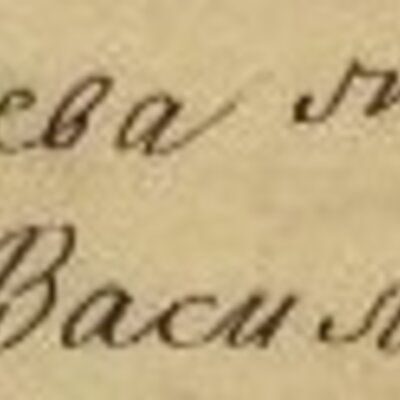 ева
Васил